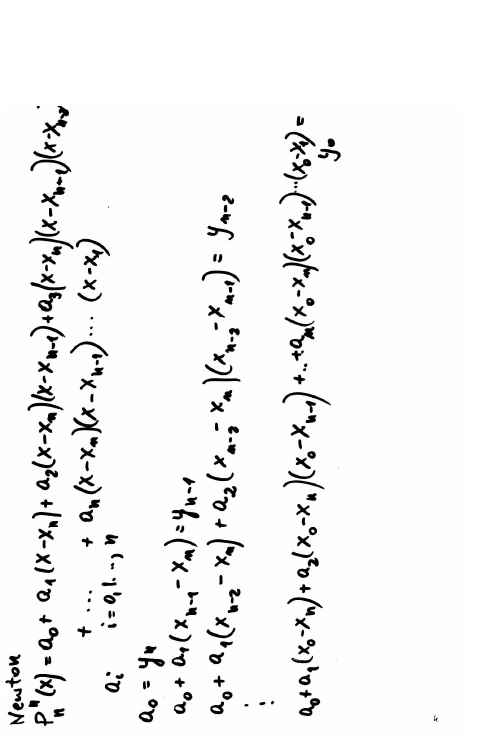 Newton
Pₙᴺ(x) = a₀ + a₁(x-xₙ) + a₂(x-xₙ)(x-xₙ₋₁) + a₃(x-xₙ)(x-xₙ₋₁)(x-xₙ₋₂)
+ ... + aₙ(x-xₙ)(x-xₙ₋₁)...(x-x₁)
aᵢ i=0,1...,n
a₀ = yₙ
a₀ + a₁(xₙ₋₁ - xₙ) = yₙ₋₁
a₀ + a₁(xₙ₋₂ - xₙ) + a₂(xₙ₋₂ - xₙ)(xₙ₋₂ - xₙ₋₁) = yₙ₋₂
⋮
a₀ + a₁(x₀-xₙ) + a₂(x₀-xₙ)(x₀-xₙ₋₁) + ... + aₙ(x₀-xₙ)(x₀-xₙ₋₁)...(x₀-x₁) =
y₀